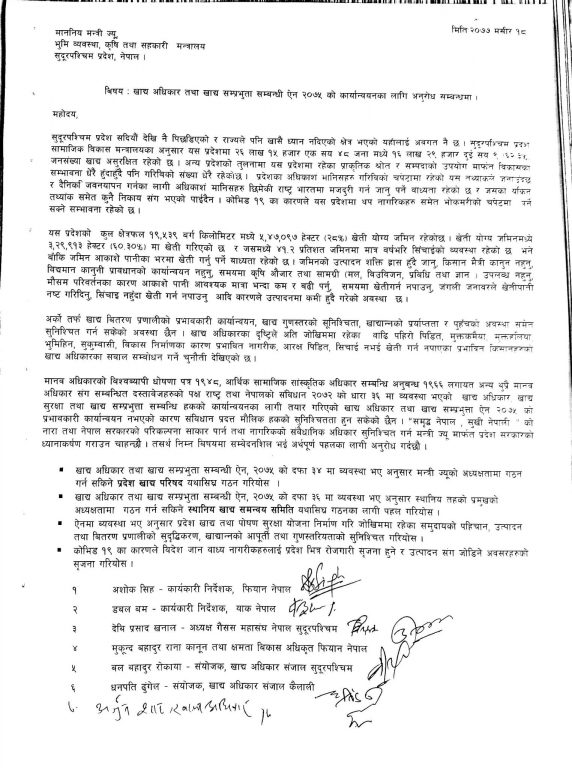 मिति २०७७ मंसीर १८
माननिय मन्त्री ज्यू,
भुमि व्यवस्था, कृषि तथा सहकारी मन्त्रालय
सुदूरपश्चिम प्रदेश, नेपाल ।
बिषय : खाद्य अधिकार तथा खाद्य सम्प्रभुता सम्बन्धी ऐन २०७५ को कार्यान्वयनका लागि अनुरोध सम्बन्धमा ।
महोदय,
सुदूरपश्चिम प्रदेश सदियौं देखि नै पिछडिएको र राज्यले पनि खासै ध्यान नदिएको क्षेत्र भएको यहाँलाई अवगत नै छ । सुदूरपश्चिम प्रदेश
सामाजिक बिकास मन्त्रालयका अनुसार यस प्रदेशमा २६ लाख १५ हजार एक सय ४८ जना मध्ये १६ लाख २९ हजार दुई सय
जनसंख्या खाद्य असुरक्षित रहेको छ । अन्य प्रदेशको तुलनामा यस प्रदेशमा रहेका प्राकृतिक श्रोत र सम्पदाको उपयोग मार्फत विकासका
सम्भावना धेरै हुँदाहुँदै पनि गरिबिको संख्या धेरै रहेकोछ । प्रदेशका अधिकांश मानिसहरु गरिबिको चपेटामा रहेको यस तथ्याकले जनाउँदछ
र दैनिकी जवनयापन गर्नका लागी अधिकांश मानिसहरु छिमेकी राष्ट्र भारतमा मजदुरी गर्न जानु पर्ने बाध्यता रहेको छ र जसको यकिन
तथ्यांक समेत कुनै निकाय संग भएको पाईदैन । कोभिड १९ का कारणले यस प्रदेशमा थप नागरिकहरु समेत भोकमरीको चपेटामा पर्न
सक्ने सम्भावना रहेको छ ।
यस प्रदेशको कुल क्षेत्रफल १९,५३९ बर्ग किलोमिटर मध्ये ५,४७,०९७ हेक्टर (२८%) खेती योग्य जमिन रहेकोछ । खेती योग्य जमिनमध्ये
३,२९,९१३ हेक्टर (६०.३०%) मा खेती गरिएको छ र जसमध्ये ४१.२ प्रतिशत जमिनमा मात्र बर्षभरि सिंचाईको ब्यवस्था रहेको छ भने
बाँकि जमिन आकाशे पानीका भरमा खेती गर्नु पर्ने बाध्यता रहेको छ । जमिनको उत्पादन शक्ति ह्रास हुदै जानु, किसान मैत्री कानुन नहुनु,
विद्यमान कानुनी प्रावधानको कार्यान्वयन नहुनु, समयमा कृषि औजार तथा सामाग्री (मल, बिउबिजन, प्रबिधि तथा ज्ञान । उपलब्ध नहुनु,
मौसम परिवर्तनका कारण आकाशे पानी आवश्यक मात्रा भन्दा कम र बढी पर्नु, समयमा खेतीगर्न नपाउनु, जंगली जनावरले खेतीपानी
नष्ट गरिदिनु, सिंचाइ नहुँदा खेती गर्न नपाउनु आदि कारणले उत्पादनमा कमी हुदै गरेको अवस्था छ ।
अर्को तर्फ खाद्य बितरण प्रणालीको प्रभावकारी कार्यान्वयन, खाद्य गुणस्तरको सुनिश्चिता, खाद्यान्नको प्रर्याप्तता र पुहँचको अवस्था समेत
सुनिश्चित गर्न सकेको अवस्था छैन । खाद्य अधिकारका दृष्टिले अति जोखिममा रहेका बाढि पहिरो पिडित, मुक्तकमैया,
भुमिहिन, सुकुम्वासी, विकास निर्माणका कारण प्रभावित नागरीक, आरक्ष पिडित, सिचाई नभई खेती गर्न नपाएका प्रभावित किसानहरुको
खाद्य अधिकारका सबाल सम्बोधन गर्ने चुनौती देखिएको छ ।
मानव अधिकारको विश्वब्यापी घोषणा पत्र १९४८, आर्थिक सामाजिक सांस्कृतिक अधिकार सम्बन्धि अनुबन्ध १९६६ लगायत अन्य थुप्रै मानव
अधिकार संग सम्बन्धित दस्तावेजहरुको पक्ष राष्ट्र तथा नेपालको संविधान २०७२ को धारा ३६ मा व्यवस्था भएको खाद्य अधिकार खाद्य
सुरक्षा तथा खाद्य सम्प्रभुत्ता सम्बन्धि हकको कार्यान्वयनका लागी तयार गरिएको खाद्य अधिकार तथा खाद्य सम्प्रभुत्ता ऐन २०७५ को
प्रभावकारी कार्यान्वयन नभएको कारण संविधान प्रदत्त मौलिक हकको सुनिश्चितता हुन सकेको छैन । "समृद्ध नेपाल , सुखी नेपाली " को
नारा तथा नेपाल सरकारको परिकल्पना साकार पार्न तथा नागरिकको संवैधानिक अधिकार सुनिश्चित गर्न मन्त्री ज्यू मार्फत प्रदेश सरकारको
ध्यानाकर्षण गराउन चाहन्छौं । तसर्थ निम्न बिषयमा सम्वेदनशिल भई अर्थपूर्ण पहलका लागी अनुरोध गर्दछौं ।
▪ खाद्य अधिकार तथा खाद्य सम्प्रभुता सम्बन्धी ऐन, २०७५ को दफा ३४ मा ब्यवस्था भए अनुसार मन्त्री ज्यूको अध्यक्षतामा गठन
गर्न सकिने प्रदेश खाद्य परिषद यथासिघ्र गठन गरियोस ।
▪ खाद्य अधिकार तथा खाद्य सम्प्रभुता सम्बन्धी ऐन, २०७५ को दफा ३६ मा ब्यवस्था भए अनुसार स्थानिय तहको प्रमुखको
अध्यक्षतामा गठन गर्न सकिने स्थानिय खाद्य समन्वय समिति यथासिघ्र गठनका लागी पहल गरियोस ।
▪ ऐनमा ब्यवस्था भए अनुसार प्रदेश खाद्य तथा पोषण सुरक्षा योजना निर्माण गरि जोखिममा रहेका समुदायको पहिचान, उत्पादन
तथा बितरण प्रणालीको सुदृढिकरण, खाद्यान्नको आपूर्ती तथा गुणस्तरियताको सुनिश्चित गरियोस ।
▪ कोभिड १९ का कारणले विदेश जान वाध्य नागरीकहरुलाई प्रदेश भित्र रोजगारी सृजना हुने र उत्पादन संग जोडिने अवसरहरुको
सृजना गरियोस ।
१ अशोक सिंह - कार्यकारी निर्देशक, फियान नेपाल
२ डबल बम - कार्यकारी निर्देशक, याक नेपाल
३ देबि प्रसाद खनाल - अध्यक्ष गैसस महासंघ नेपाल सुदूरपश्चिम
४ मुकुन्द बहादुर राना कानून तथा क्षमता बिकास अधिकृत फियान नेपाल
५ बल बहादुर रोकाया - संयोजक, खाद्य अधिकार संजाल सुदूरपश्चिम
६ धनपति ढुंगेल - संयोजक, खाद्य अधिकार संजाल कैलाली